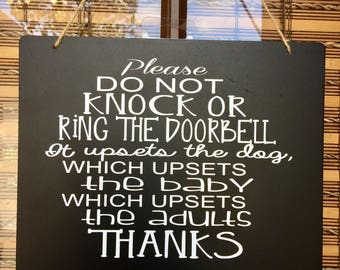 Please
DO NOT
KNOCK OR
RING THE DOORBELL
It upsets the dog,
WHICH UPSETS
the baby
WHICH UPSETS
the adults
THANKS